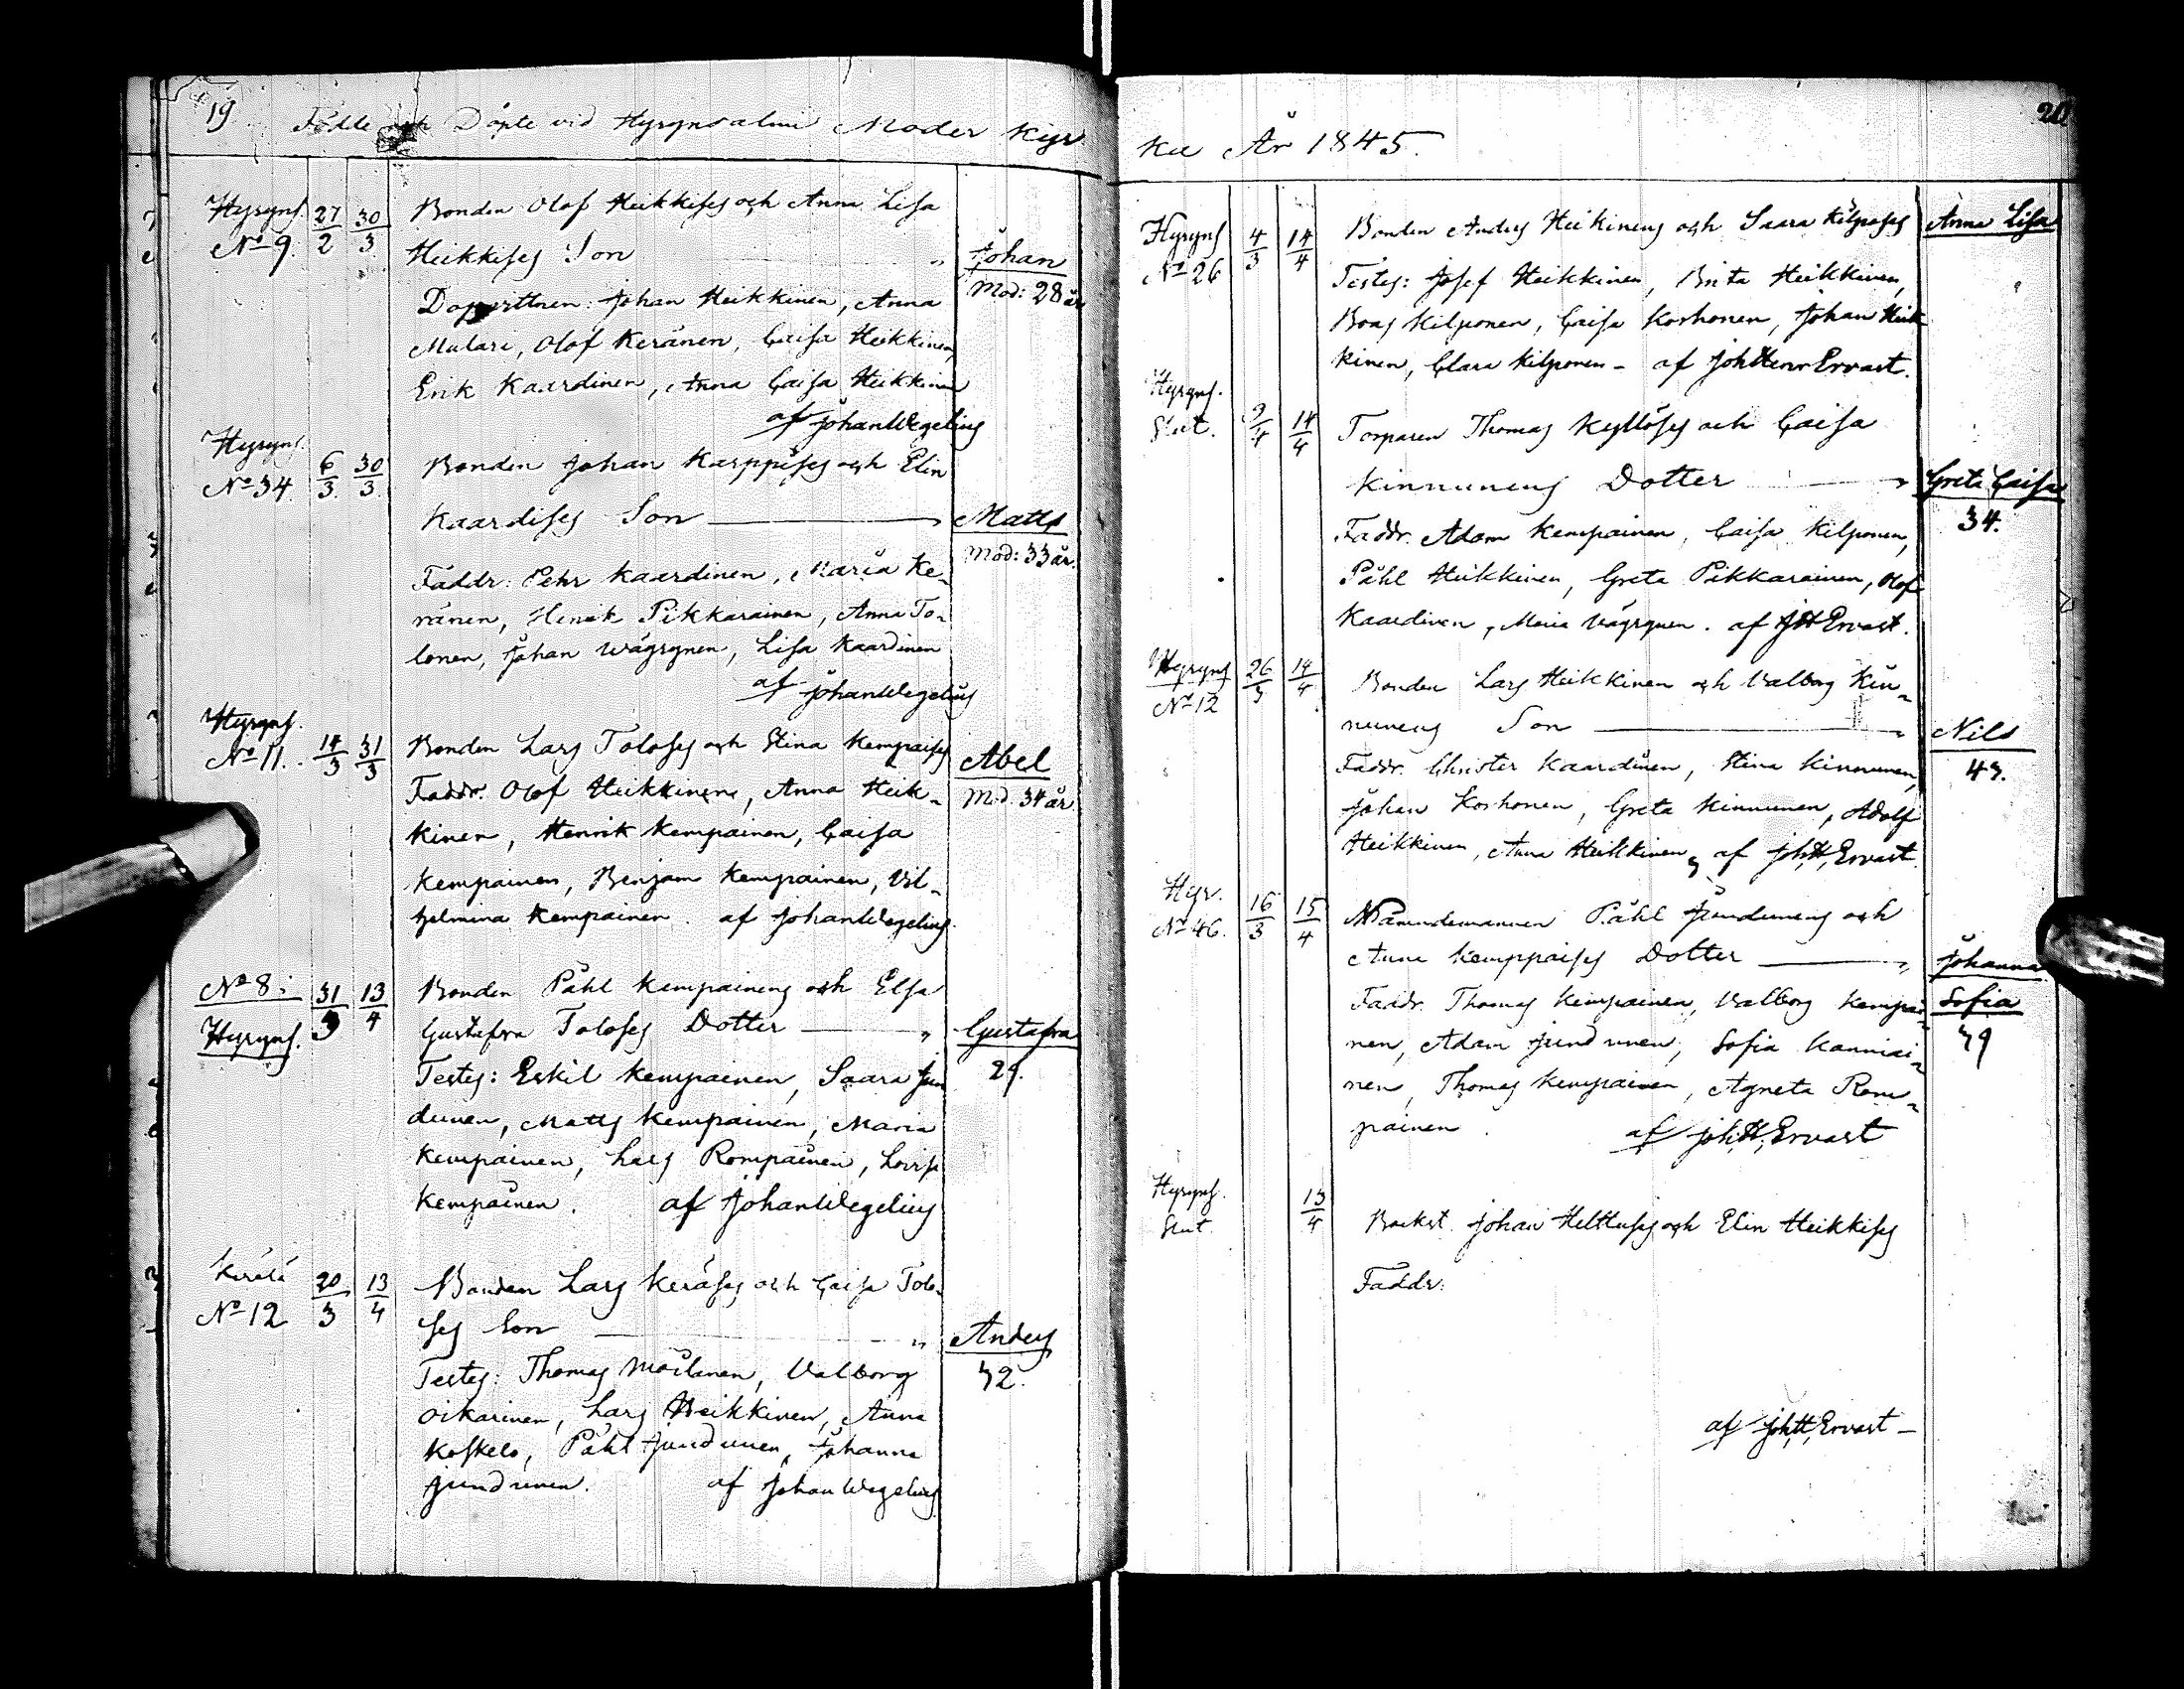 19 Födde och Döpte vid Hyrynsalmi Moder Kyr
Hyryns. 27/2 30/3 Bonden Olof Heikkises och Anna Lisa
No 9. Heikkises Son " Johan
Mod: 28 år
Dopvittnen: Johan Heikkinen, Anna
Mulari, Olof Keränen, Caisa Heikkinen,
Erik Kaardinen, Anna Caisa Heikkinen
af Johan Wegelius
Hyryns.
No 34 6/3 30/3 Bonden Johan Karppises och Elin
Kaardises Son " Matts
Mod: 33 år.
Faddr: Pehr Kaardinen, Maria Ke-
ränen, Henrik Pikkarainen, Anna To-
lonen, Johan Wäyrynen, Lisa Kaardinen
af Johan Wegelius
Hyryns.
No 11. 14/3 31/3 Bonden Lars Toloses och Stina Kempaises Abel
Faddr. Olof Heikkinen, Anna Heik- Mod. 34 år
kinen, Henrik Kempainen, Caisa
Kempainen, Benjam Kempainen, Vil-
helmina Kempainen. af Johan Wegelius.
No 8 i 31/3 13/4 Bonden Påhl Kempainens och Elsa
Hyryns. Gustafva Toloses Dotter " Gustafva
Testes: Eskil Kempainen, Saara Jun 29.
dunen, Matts Kempainen, Maria
Kempainen, Lars Rompainen, Lovisa
Kempainen. af Johan Wegelius
Kerälä
No 12 20/3 13/4 Bonden Lars Keräses och Caisa Tolo-
ses Son " Anders
Testes: Thomas Moilanen, Valborg 32.
Oikarinen, Lars Heikkinen, Anna
Koskelo, Påhl Jundunen, Johanna
Jundunen. af Johan Wegelius
20
ka År 1845.
Hyryns 4/3 14/4 Bonden Anders Heikinens och Saara Kilposes Anna Lisa
No 26 Testes: Josef Heikkinen, Brita Heikkinen,
Boas Kilponen, Caisa Korhonen, Johan Heik
kinen, Clara Kilponen - af Joh Henr Ervast.
Hyryns.
Slut. 9/4 14/4 Torparen Thomas Kyllöses och Caisa
Kinnunens Dotter " Greta Caisa
Faddr. Adam Kempainen, Caisa Kilponen, 34.
Påhl Heikkinen, Greta Pikkarainen, Olof
Kaardinen, Maria Wäyrynen. af JH Ervast.
Hyryns 26/3 14/4 Bonden Lars Heikkinen och Valborg Kin-
No 12 nunens Son " Nils
Faddr. Christer Kaardinen, Stina Kinnunen, 43.
Johan Korhonen, Greta Kinnunen, Adolf
Heikkinen, Anna Heikkinen, af Joh, H, Ervast.
Hyr. 16/3 15/4 Nämndemannen Påhl Jundunens och
No 46. Anna Kemppaises Dotter " Johanna
Faddr. Thomas Kempainen, Valborg Kempai- Sofia
nen, Adam Jundunen, Sofia Kanniai- 39
nen, Thomas Kempainen, Agneta Rom-
painen. af Joh, H, Ervast
Hyryns.
Slut. 13/4 Backst. Johan Helttuses och Elin Heikkises
Faddr:
af Joh, H, Ervast -